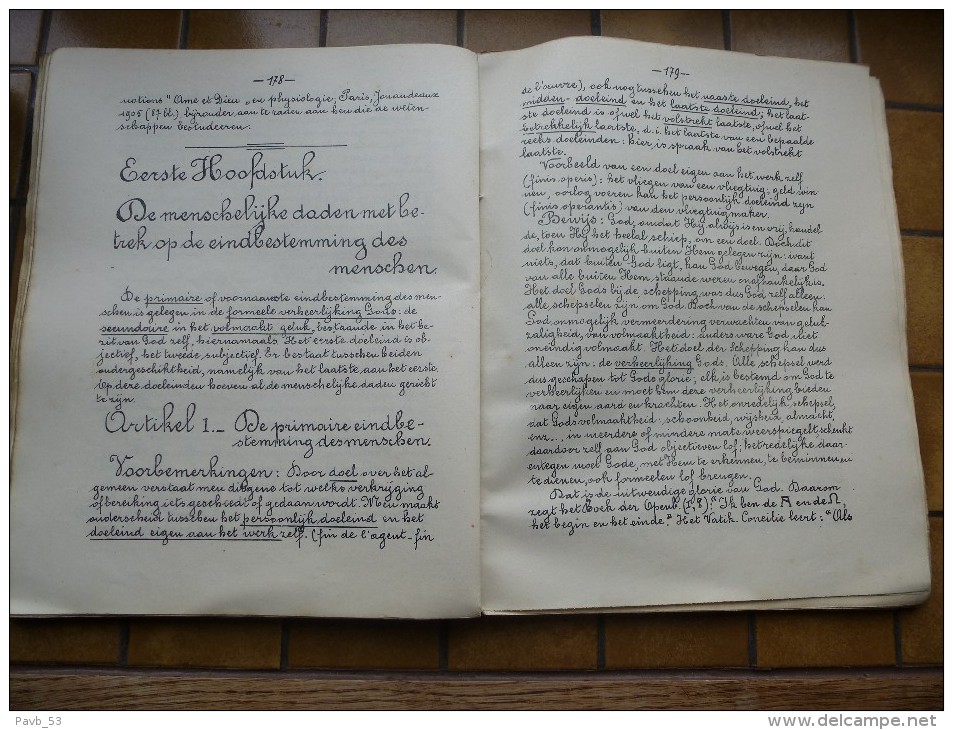 —178—
notions "Ame et Dieu" en physiologie, Paris, Jouandeaux
1906 (87 bl.) bijzonder aan te raden aan hen die de weten-
schappen bestudeeren.
Eerste Hoofdstuk.
De menschelijke daden met be-
trek op de eindbestemming des
menschen.
De primaire of voornaamste eindbestemming des men-
schen is gelegen in de formeele verheerlijking Gods: de
secundaire in het volmaakt geluk, bestaande in het be-
zit van God zelf, hiernamaals. Het eerste doeleind is ob-
jectief, het tweede subjectief. Er bestaat tusschen beiden
ondergeschiktheid, namelijk van het laatste aan het eerste.
Op deze doeleinden hoeven al de menschelijke daden gericht
te zijn.
Artikel 1.— De primaire eindbe-
stemming des menschen.
Voorbemerkingen: Door doel over het al-
gemeen verstaat men diegene tot welks verkrijging
of bereiking iets geschiedt of gedaan wordt. Men maakt
onderscheid tusschen het persoonlijk doeleind en het
doeleind eigen aan het werk zelf. (fin de l'agent-fin
—179—
de l'œuvre), ook nog tusschen het naaste doeleind, het
midden-doeleind en het laatste doeleind; het laat-
ste doeleind is ofwel het volstrekt laatste, ofwel het
betrekkelijk laatste, d.i. het laatste van een bepaalde
reeks doeleinden: hier, is spraak van het volstrekt
laatste.
Voorbeeld van een doel eigen aan het werk zelf
(finis operis): het vliegen van een vliegtuig: geld win
nen, oorlog voeren kan het persoonlijk doeleind zijn
(finis operantis) van den vliegtuigmaker.
Bewijs: God, omdat Hij altijds en vrij, handel
de, toen Hij het heelal schiep, om een doel. Doch dit
doel kon onmogelijk buiten Hem gelegen zijn: want
niets, dat buiten God ligt, kan God bewegen, daar God
van alle buiten Hem staande wezen onafhankelijk is.
Het doel Gods bij de schepping was dus God zelf alleen:
alle schepselen zijn om God. Doch van de schepselen kan
God onmogelijk vermeerdering verwachten van geluk-
zaligheid, van volmaaktheid: anders ware God niet
oneindig volmaakt. Het doel der Schepping kan dus
alleen zijn: de verheerlijking Gods. Alle schepsel werd
dus geschapen tot Gods glorie; elk is bestemd om God te
verheerlijken en moet hem deze verheerlijking bieden
naar eigen aard en krachten. Het onredelijk schepsel,
dat Gods volmaaktheid: schoonheid, wijsheid, almacht,
enz... in meerdere of mindere mate weerspiegelt schenkt
daardoor zelf aan God objectieven lof: het redelijke daar-
entegen moet Gode, met Hem te erkennen, te beminnen, en
te dienen, ook formeelen lof brengen.
Dat is de uitwendige glorie van God. Daarom
zegt het Boek der Openb. (I,8): "Ik ben de A en de Ω,
het begin en het einde." Het Vatik. Concilie leert: "Als
Pavb_53
www.delcampe.net